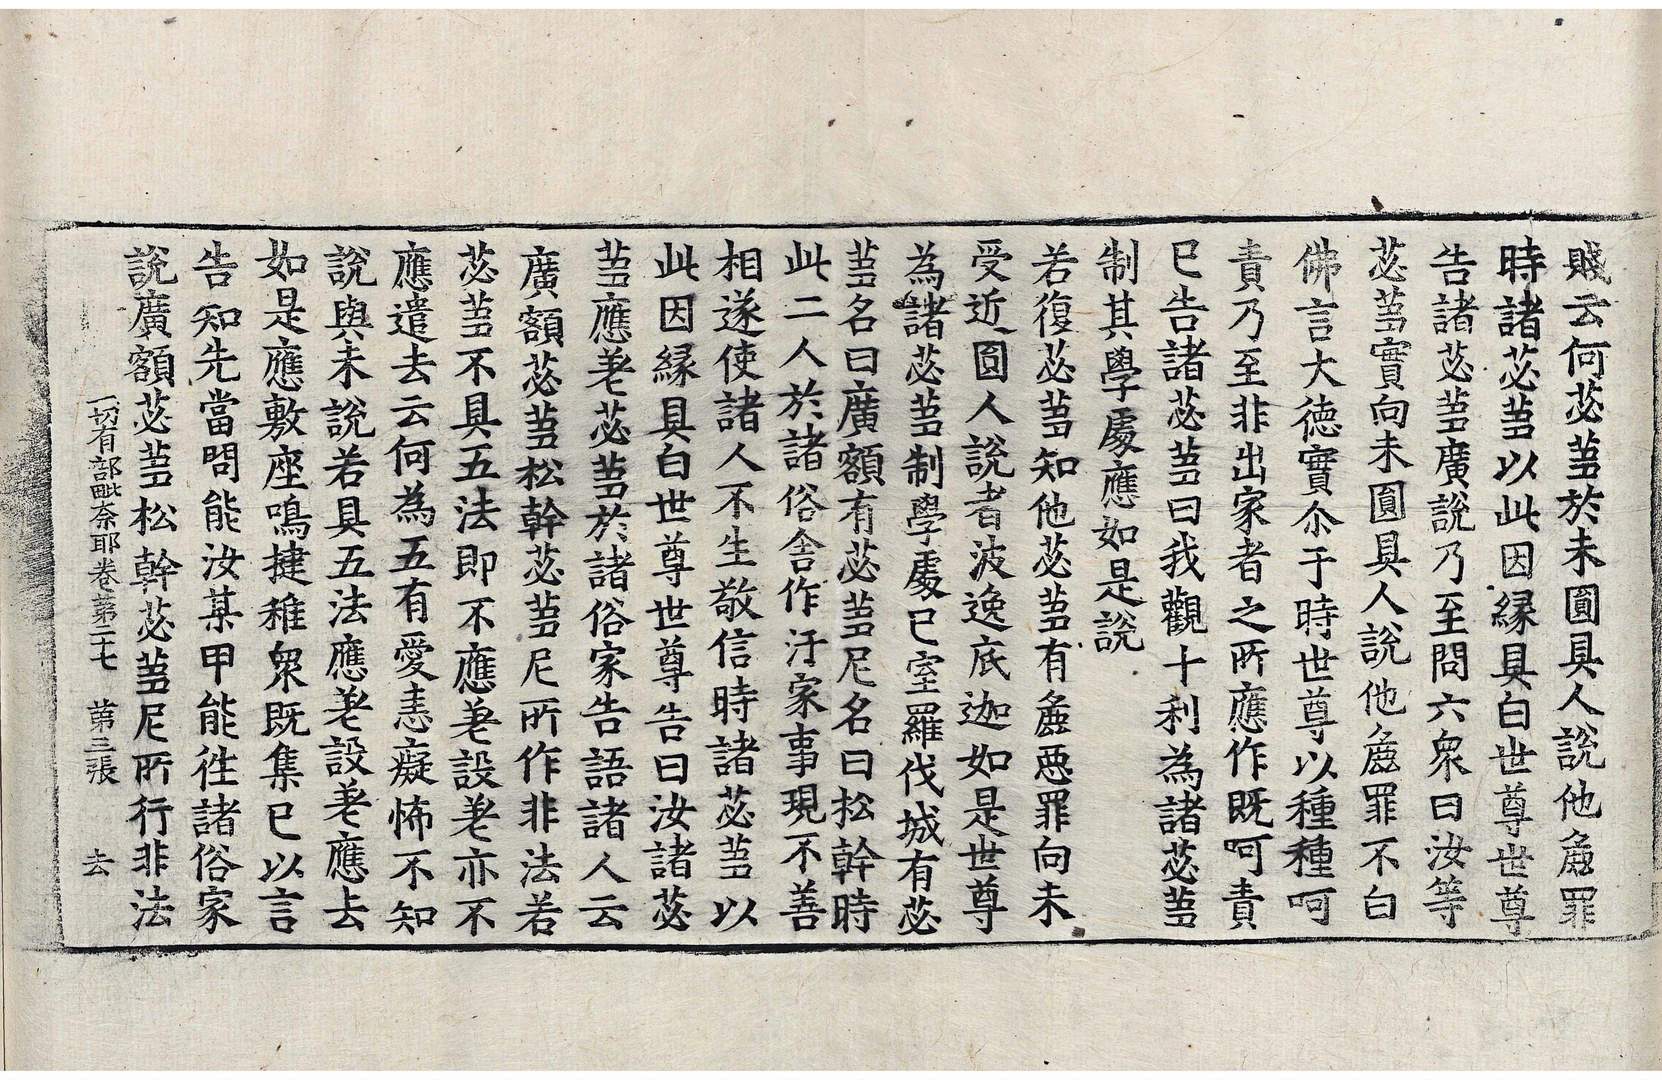 賤云何苾芻於未圓具人說他麁罪
時諸苾芻以此因緣具白世尊世尊
告諸苾芻廣說乃至問六衆曰汝等
苾芻實向未圓具人說他麁罪不白
佛言大德實尒于時世尊以種種呵
責乃至非出家者之所應作旣呵責
已告諸苾芻曰我觀十利為諸苾芻
制其學處應如是說
若復苾芻知他苾芻有麁惡罪向未
受近圓人說者波逸底迦如是世尊
為諸苾芻制學處已室羅伐城有苾
芻名曰廣額有苾芻尼名曰松幹時
此二人於諸俗舍作汙家事現不善
相遂使諸人不生敬信時諸苾芻以
此因緣具白世尊世尊告曰汝諸苾
芻應差苾芻於諸俗家告語諸人云
廣額苾芻松幹苾芻尼所作非法若
苾芻不具五法即不應差設差亦不
應遣去云何為五有愛恚癡怖不知
說與未說若具五法應差設差應去
如是應敷座鳴揵稚衆旣集已以言
告知先當問能汝某甲能往諸俗家
說廣額苾芻松幹苾芻尼所行非法
一切有部毗奈耶卷第二十七 第三張 去